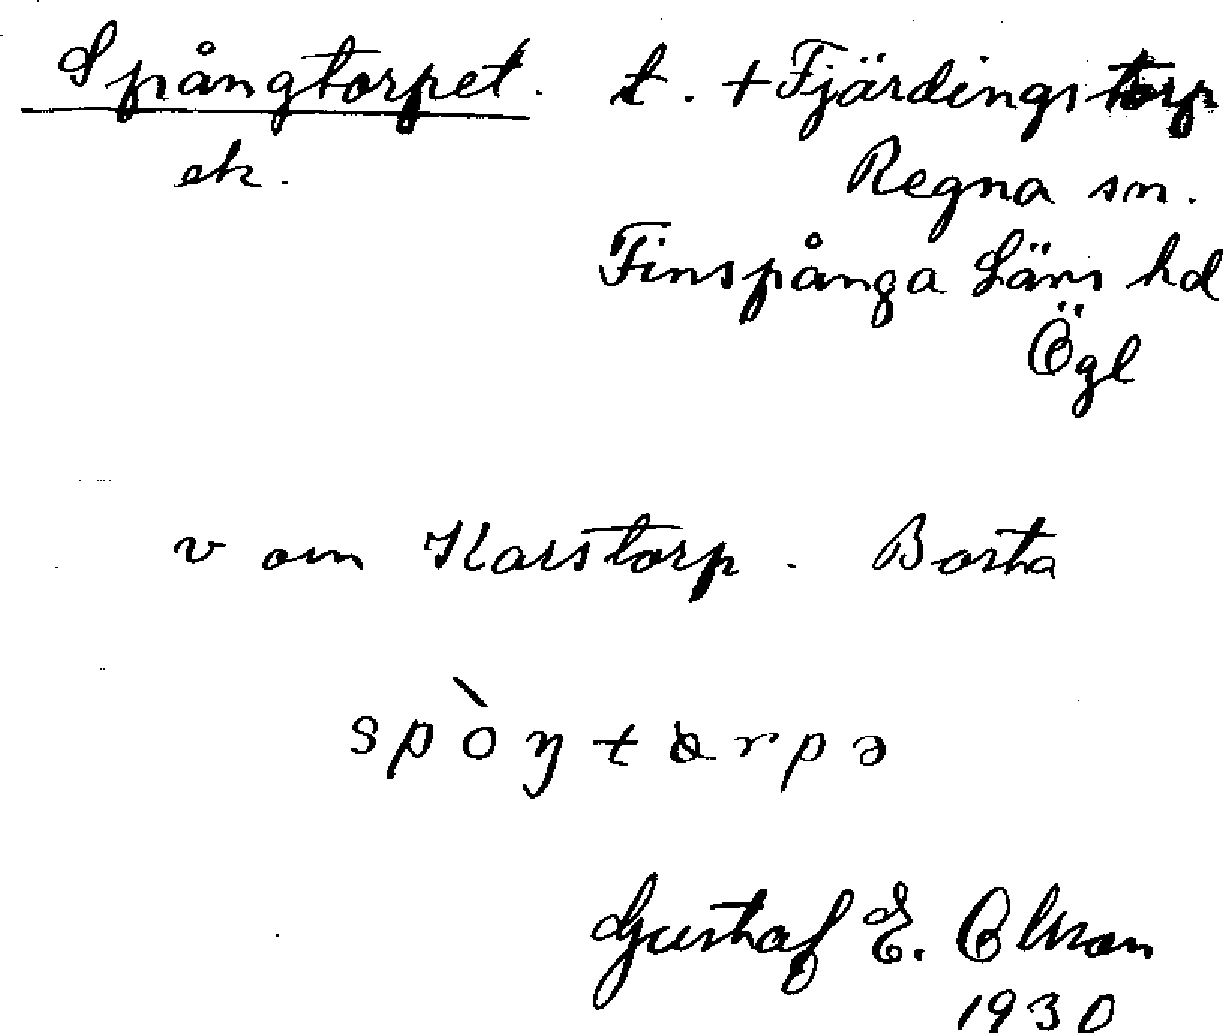 Spångtorpet. t. + Fjärdingstorp
ek. Regna sn.
Finspånga Läns hd
Ögl
v om Karstorp. Borta
spòŋtårpə
Gustaf E. Olsson
1930